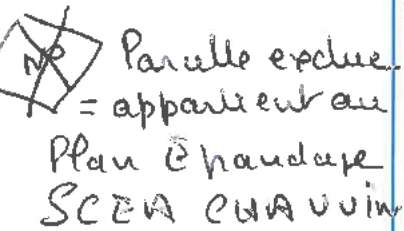 NP Parcelle exclue
= appartient au
Plan Epandage
SCEA CHAUVIN